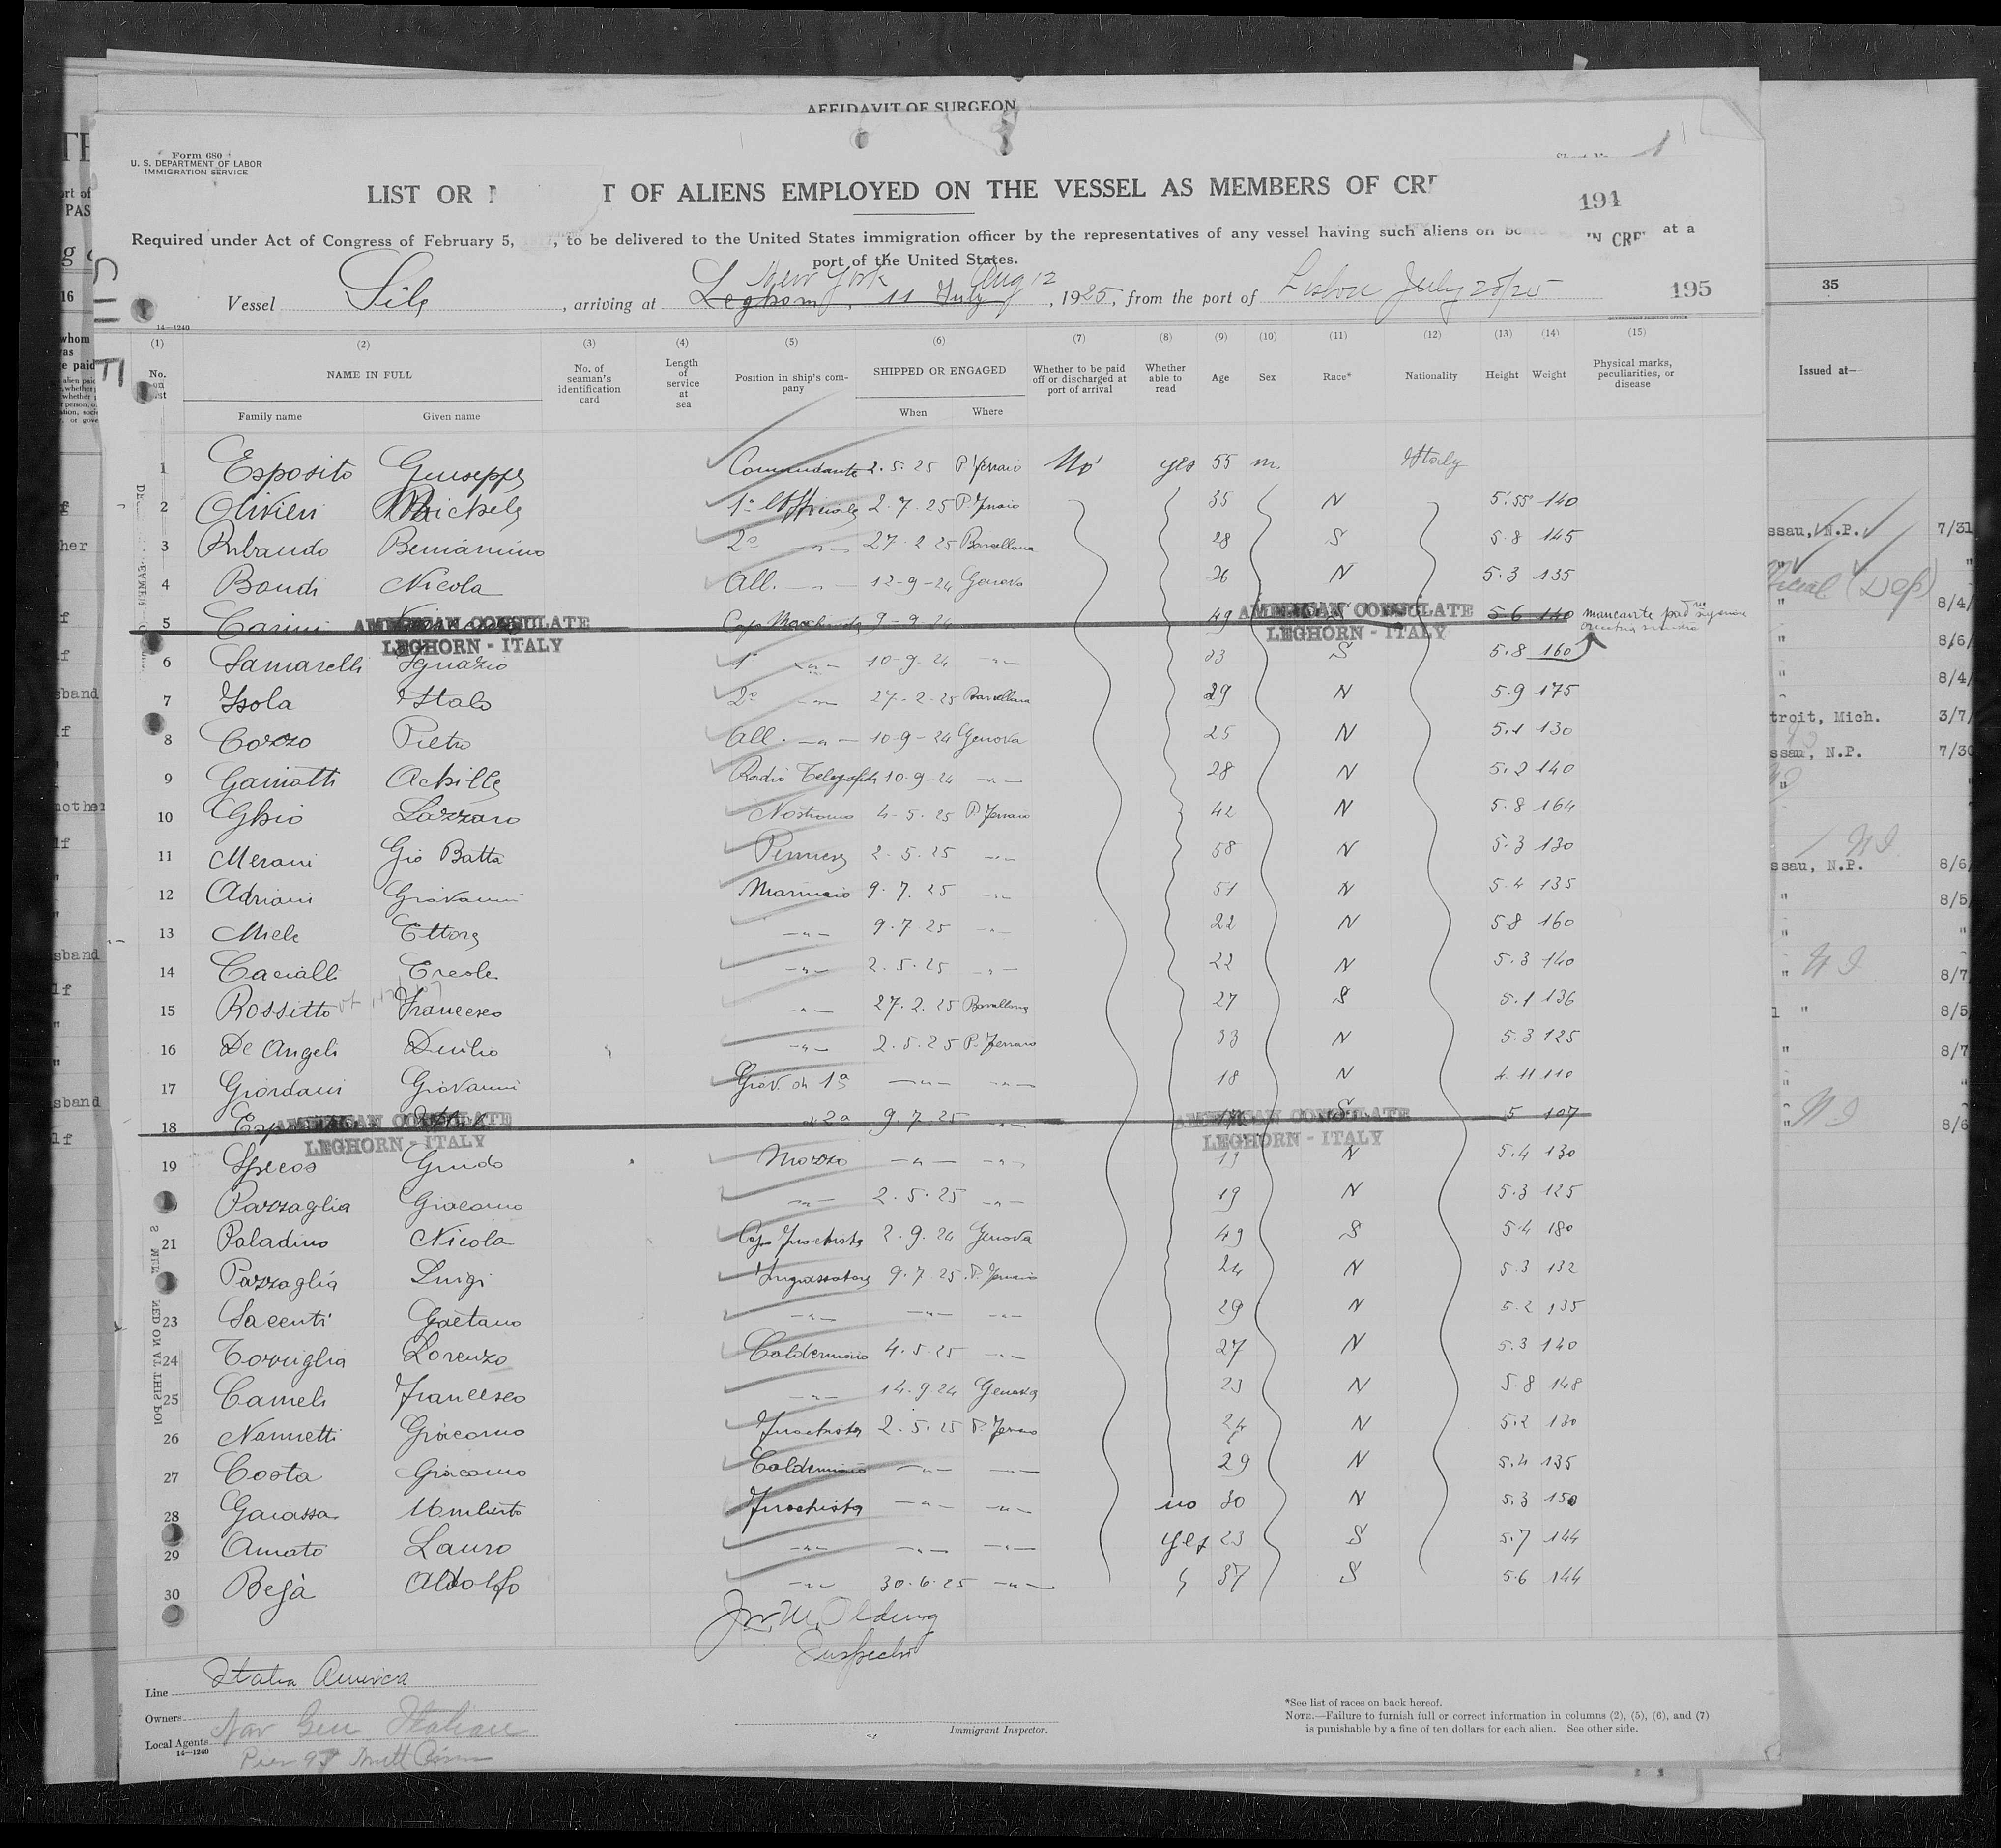 AFFIDAVIT OF SURGEON
Form 680
U. S. DEPARTMENT OF LABOR
IMMIGRATION SERVICE
1
LIST OR T OF ALIENS EMPLOYED ON THE VESSEL AS MEMBERS OF CRE
194
Required under Act of Congress of February 5, , to be delivered to the United States immigration officer by the representatives of any vessel having such aliens on bo at a
IN CRE
port of the United States.
New York Aug 12
Vessel Sile, arriving at Leghorn, 11 July, 1925, from the port of Lisbon July 28/25
195
14—1240
(1) (2) (3) (4) (5) (6) (7) (8) (9) (10) (11) (12) (13) (14) (15)
No. on list NAME IN FULL No. of seaman's identification card Length of service at sea Position in ship's company SHIPPED OR ENGAGED Whether to be paid off or discharged at port of arrival Whether able to read Age Sex Race* Nationality Height Weight Physical marks, peculiarities, or disease
Family name Given name When Where
1 Esposito Giuseppe Comandante 2.5.25 P. Ferraio No yes 55 m. Italy
2 Olivieri Michele 1º Ufficiale 2.7.25 P. Ferraio 35 N 5.55 140
3 Rubaudo Beniamino 2º —"— 27-2 25 Barcellona 28 S 5.8 145
4 Bondi Nicola All. —"— 12-9-24 Genova 26 N 5.3 135
5 Carini Capo Macchinista 9-9.24 49 5.6 140 mancante
AMERICAN CONSULATE
LEGHORN - ITALY
AMERICAN CONSULATE
LEGHORN - ITALY
6 Samarelli Ignazio 1º —"— 10-9.24 —"— 33 S 5.8 160
7 Isola Italo 2º —"— 27-2.25 Barcellona 29 N 5.9 175
8 Cozzo Pietro All. —"— 10-9-24 Genova 25 N 5.1 130
9 Gainotti Achille Radio Telegrafista 10-9-24 —"— 28 N 5.2 140
10 Ghio Lazzaro Nostromo 4-5.25 P. Ferraio 42 N 5.8 164
11 Merani Gio Batta 2.5.25 —"— 58 N 5.3 130
12 Adriani Giovanni Marinaio 9.7.25 —"— 51 N 5.4 135
13 Miele Ettore —"— 9.7 25 —"— 22 N 5.8 160
14 Cacialli Ercole —"— 2.5.25 —"— 22 N 5.3 140
15 Rossitto Francesco —"— 27.2.25 Barcellona 27 S 5.1 136
16 De Angeli Duilio —"— 2.5.25 P. Ferraio 33 N 5.3 125
17 Giordani Giovanni Giov. di 1ª —"— —"— 18 N 4.11 110
18 2ª 9.7.25 —"— S 5 107
AMERICAN CONSULATE
LEGHORN - ITALY
AMERICAN CONSULATE
LEGHORN - ITALY
19 Specos Guido Mozzo —"— —"— 19 N 5.4 130
Pazzaglia Giacomo —"— 2.5.25 —"— 19 N 5.3 125
21 Paladino Nicola Capo Fuochista 2.9.24 Genova 49 S 5.4 180
Pazzaglia Luigi Ingrassatore 9.7 25 P. Ferraio 24 N 5.3 132
23 Saccenti Gaetano —"— —"— —"— 29 N 5.2 135
24 Torriglia Lorenzo Calderinaio 4.5.25 —"— 27 N 5.3 140
25 Cameli Francesco —"— 14.9 24 Genova 23 N 5.8 148
26 Nannetti Giacomo Fuochista 2.5.25 P. Ferraio 24 N 5.2 130
27 Costa Giacomo Calderinaio —"— —"— 29 N 5.4 135
28 Gaiassa Umberto Fuochista —"— —"— no 30 N 5.3 150
29 Amato Lauro —"— —"— —"— yes 23 S 5.7 144
30 Bejà Adolfo —"— 30.6.25 —"— " 37 S 5.6 144
Jno. M. Olding
Inspector
Line Italia America
Owners Nav Gen Italian
Local Agents
14—1240
Pier 97 North River
Immigrant Inspector.
*See list of races on back hereof.
NOTE.—Failure to furnish full or correct information in columns (2), (5), (6), and (7)
is punishable by a fine of ten dollars for each alien. See other side.
35
Issued at—
ssau, N.P. 7/31
8/4/
8/6/
8/4/
troit, Mich. 3/7/
ssau, N.P. 7/30
ssau, N.P. 8/6/
8/5/
8/7
8/5
8/7
8/6